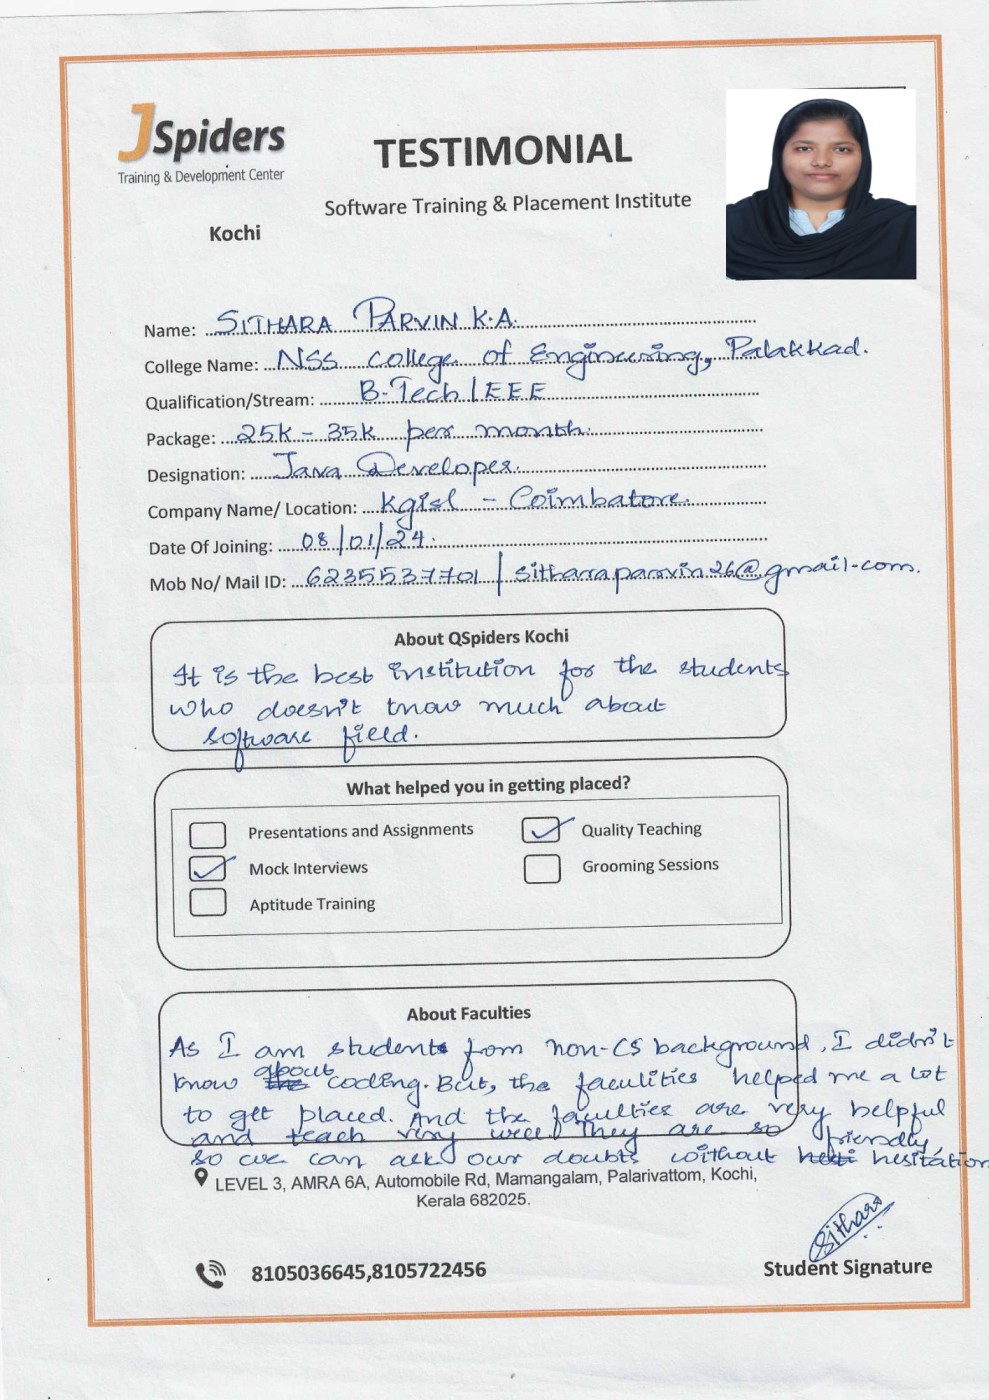 JSpiders
Training & Development Center
Kochi
TESTIMONIAL
Software Training & Placement Institute
Name: SITHARA PARVIN K.A.
College Name: NSS College of Engineering, Palakkad.
Qualification/Stream: B-Tech | EEE
Package: 25K - 35K per month.
Designation: Java Developer.
Company Name/ Location: Kgisl - Coimbatore.
Date Of Joining: 08/01/24.
Mob No/ Mail ID: 6235537701 | sitharaparvin26@gmail.com.
About QSpiders Kochi
It is the best institution for the students
who doesn't know much about
software field.
What helped you in getting placed?
Presentations and Assignments
Quality Teaching
Mock Interviews
Grooming Sessions
Aptitude Training
About Faculties
As I am student from non-CS background, I didn't
know about coding. But, the faculities helped me a lot
to get placed. And the faculties are very helpful
and teach very well. They are so friendly,
so we can ask our doubts without hesitation
LEVEL 3, AMRA 6A, Automobile Rd, Mamangalam, Palarivattom, Kochi,
Kerala 682025.
Sithara
8105036645,8105722456
Student Signature